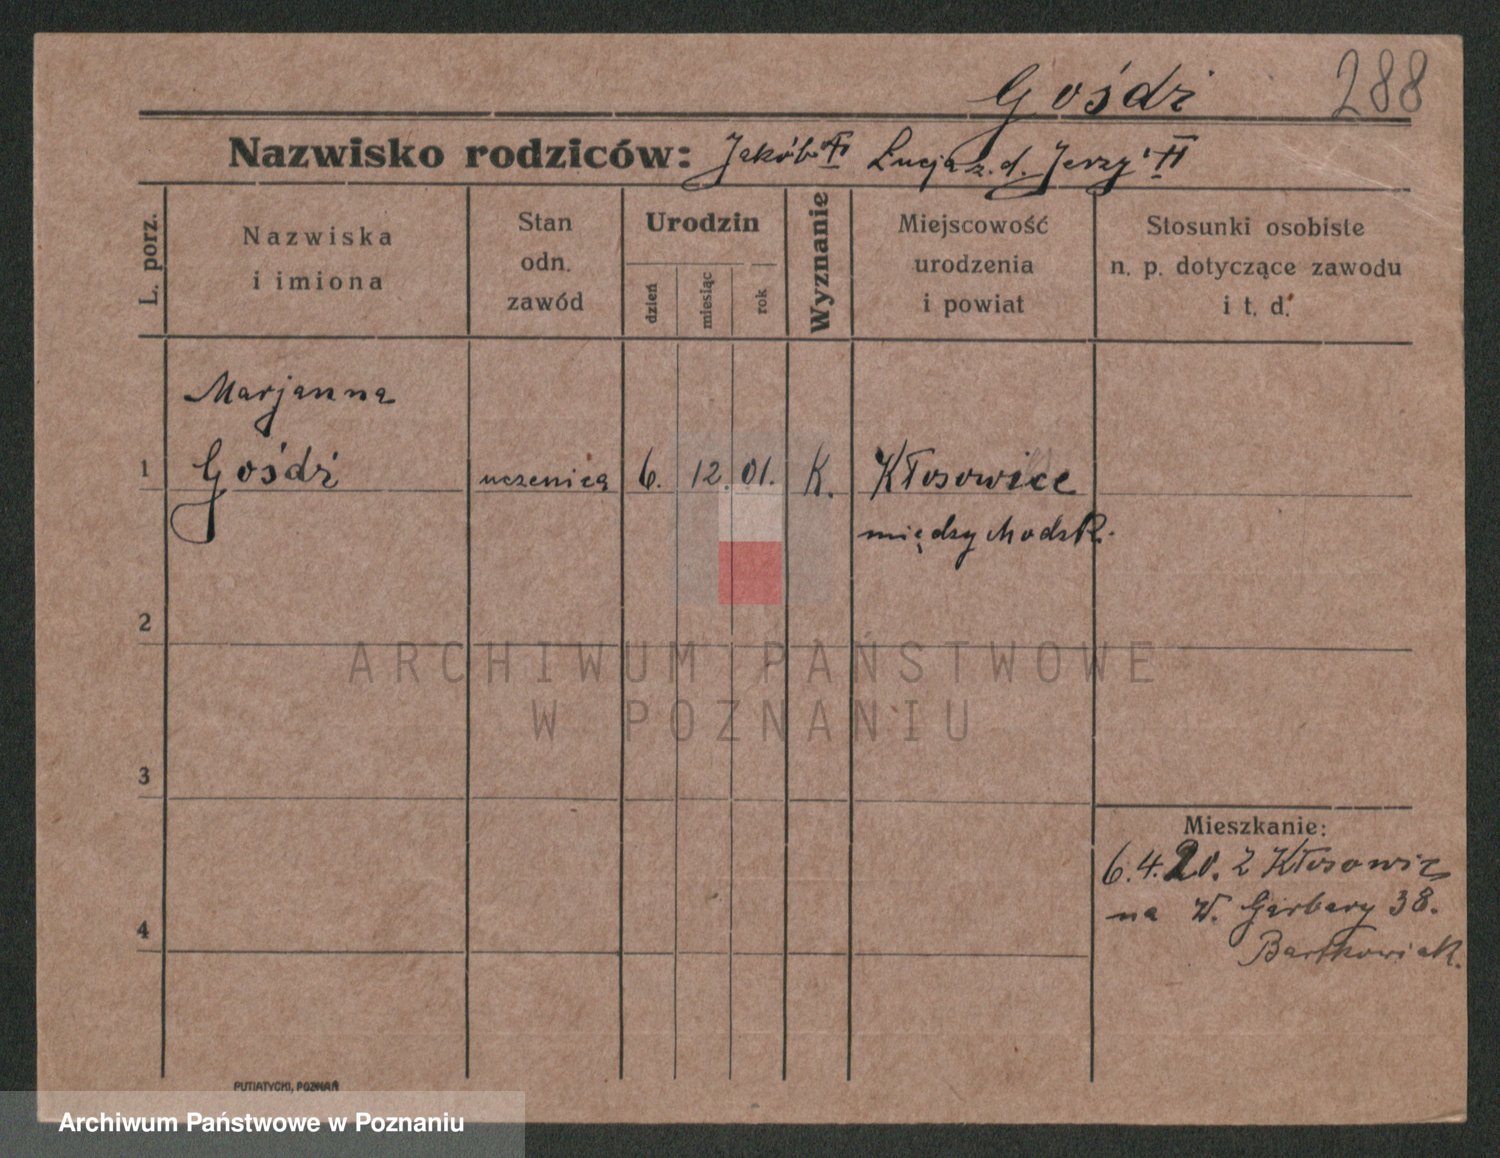 Gośdź 288
Nazwisko rodziców: Jakób Łucja z. d. Jerzy
L. porz.
Nazwiska
i imiona
Stan
odn.
zawód
Urodzin
dzień
miesiąc
rok
Wyznanie
Miejscowość
urodzenia
i powiat
Stosunki osobiste
n. p. dotyczące zawodu
i t. d.
Marjanna
1 Gośdź uczenica 6. 12. 01. K. Kłosowice
międzychodzk.
2
ARCHIWUM PAŃSTWOWE
W POZNANIU
3
Mieszkanie:
6.4.20. z Kłosowic
na W. Garbary 38.
4
Bartkowiak.
PUTIATYCKI, POZNAŃ
Archiwum Państwowe w Poznaniu